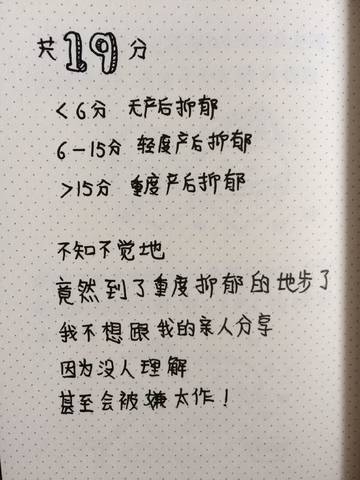 共19分
<6分 无产后抑郁
6-15分 轻度产后抑郁
>15分 重度产后抑郁
不知不觉地
竟然到了重度抑郁的地步了
我不想跟我的亲人分享
因为没人理解
甚至会被嫌太作！